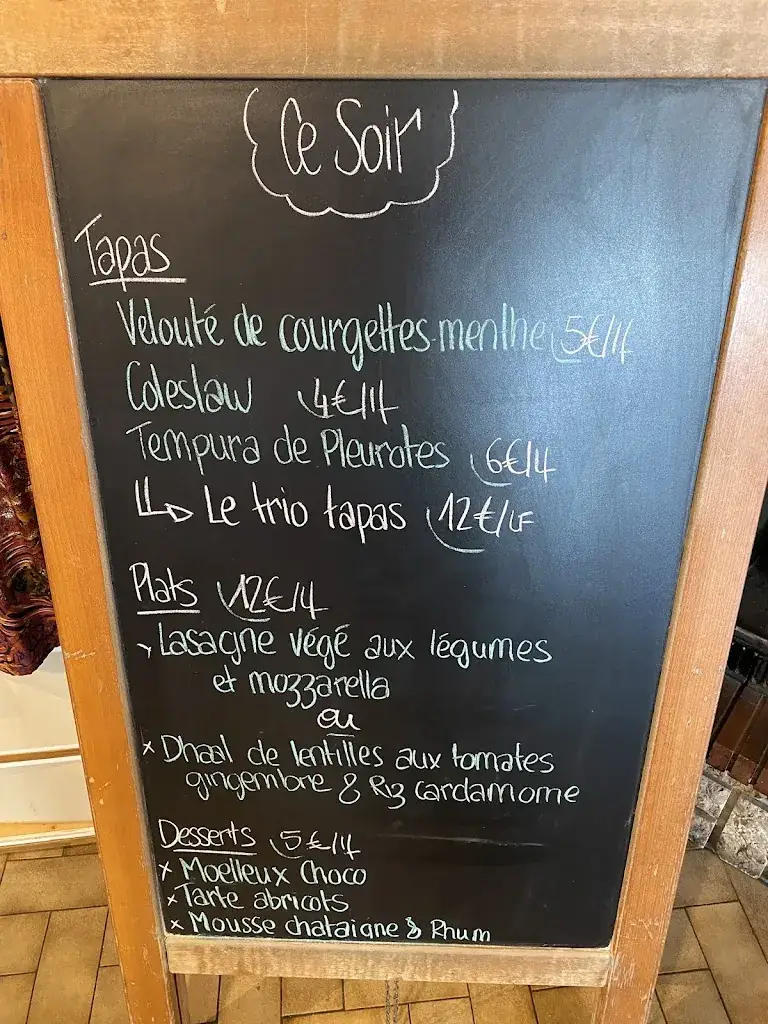 Ce Soir
Tapas
Velouté de courgettes menthe 5€/lf
Coleslaw 4€/lf
Tempura de Pleurotes 6€/lf
Le trio tapas 12€/LF
Plats 12€/lf
Lasagne végé aux légumes
et mozzarella
ou
x Dhaal de lentilles aux tomates
gingembre & Riz cardamome
Desserts 5€/lf
x Moelleux Choco
x Tarte abricots
x Mousse chataigne & Rhum